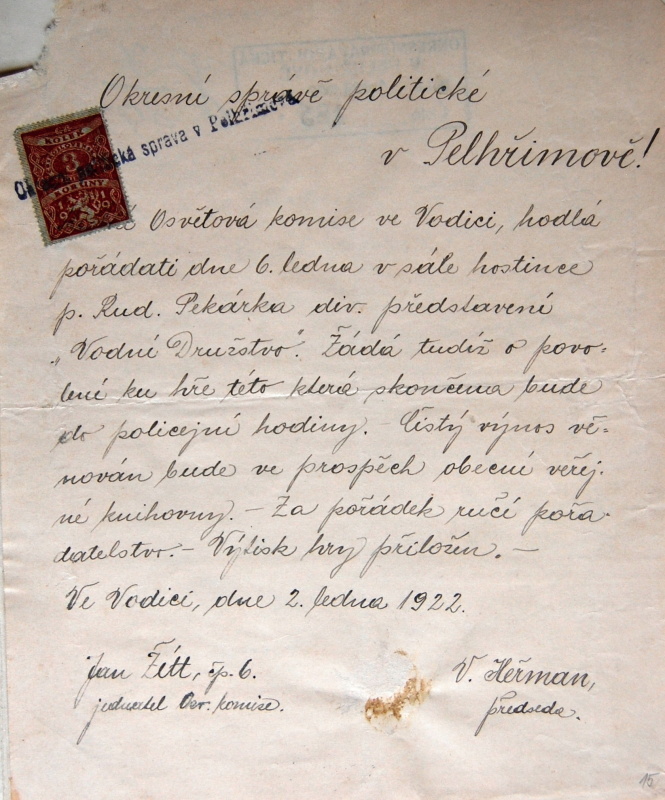 Okresní správě politické
v Pelhřimově!
KOLEK
3
KORUNY
1919
správa v Pelhřimově
Osvětová komise ve Vodici, hodlá
pořádati dne 6. ledna v sále hostince
p. Rud. Pekárka div. představení
„Vodní Družstvo“. Žádá tudíž o povo-
lení ku hře této která skončena bude
do policejní hodiny. – Čistý výnos vě-
nován bude ve prospěch obecní veřej-
né knihovny. – Za pořádek ručí pořa-
datelstvo. – Výtisk hry přiložen. –
Ve Vodici, dne 2. ledna 1922.
Jan Žitt, čp. 6.
jednatel Osv. komise.
V. Heřman,
předseda.
15